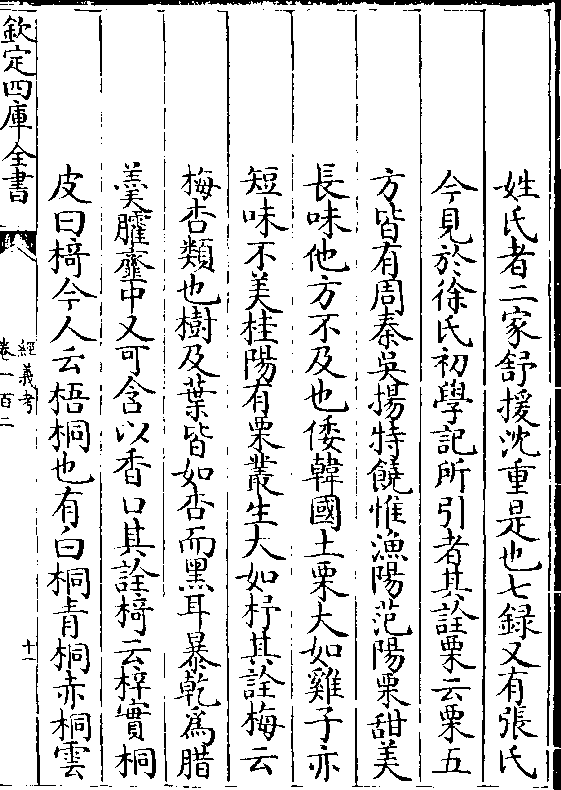 姓氏者二家舒援沈重是也七録又有張氏
今見於徐氏初學記所引者其詮栗云栗五
方皆有周秦吳揚特饒惟漁陽范陽栗甜美
長味他方不及也倭韓國土栗大如雞子亦
短味不美桂陽有栗叢生大如杼其詮梅云
梅杏類也樹及葉皆如杏而黑耳暴乾爲腊
羹臛虀中又可含以香口其詮椅云梓實桐
皮曰椅今人云梧桐也有白桐青桐赤桐雲
欽定四庫全書
經義考
卷一百二
十一